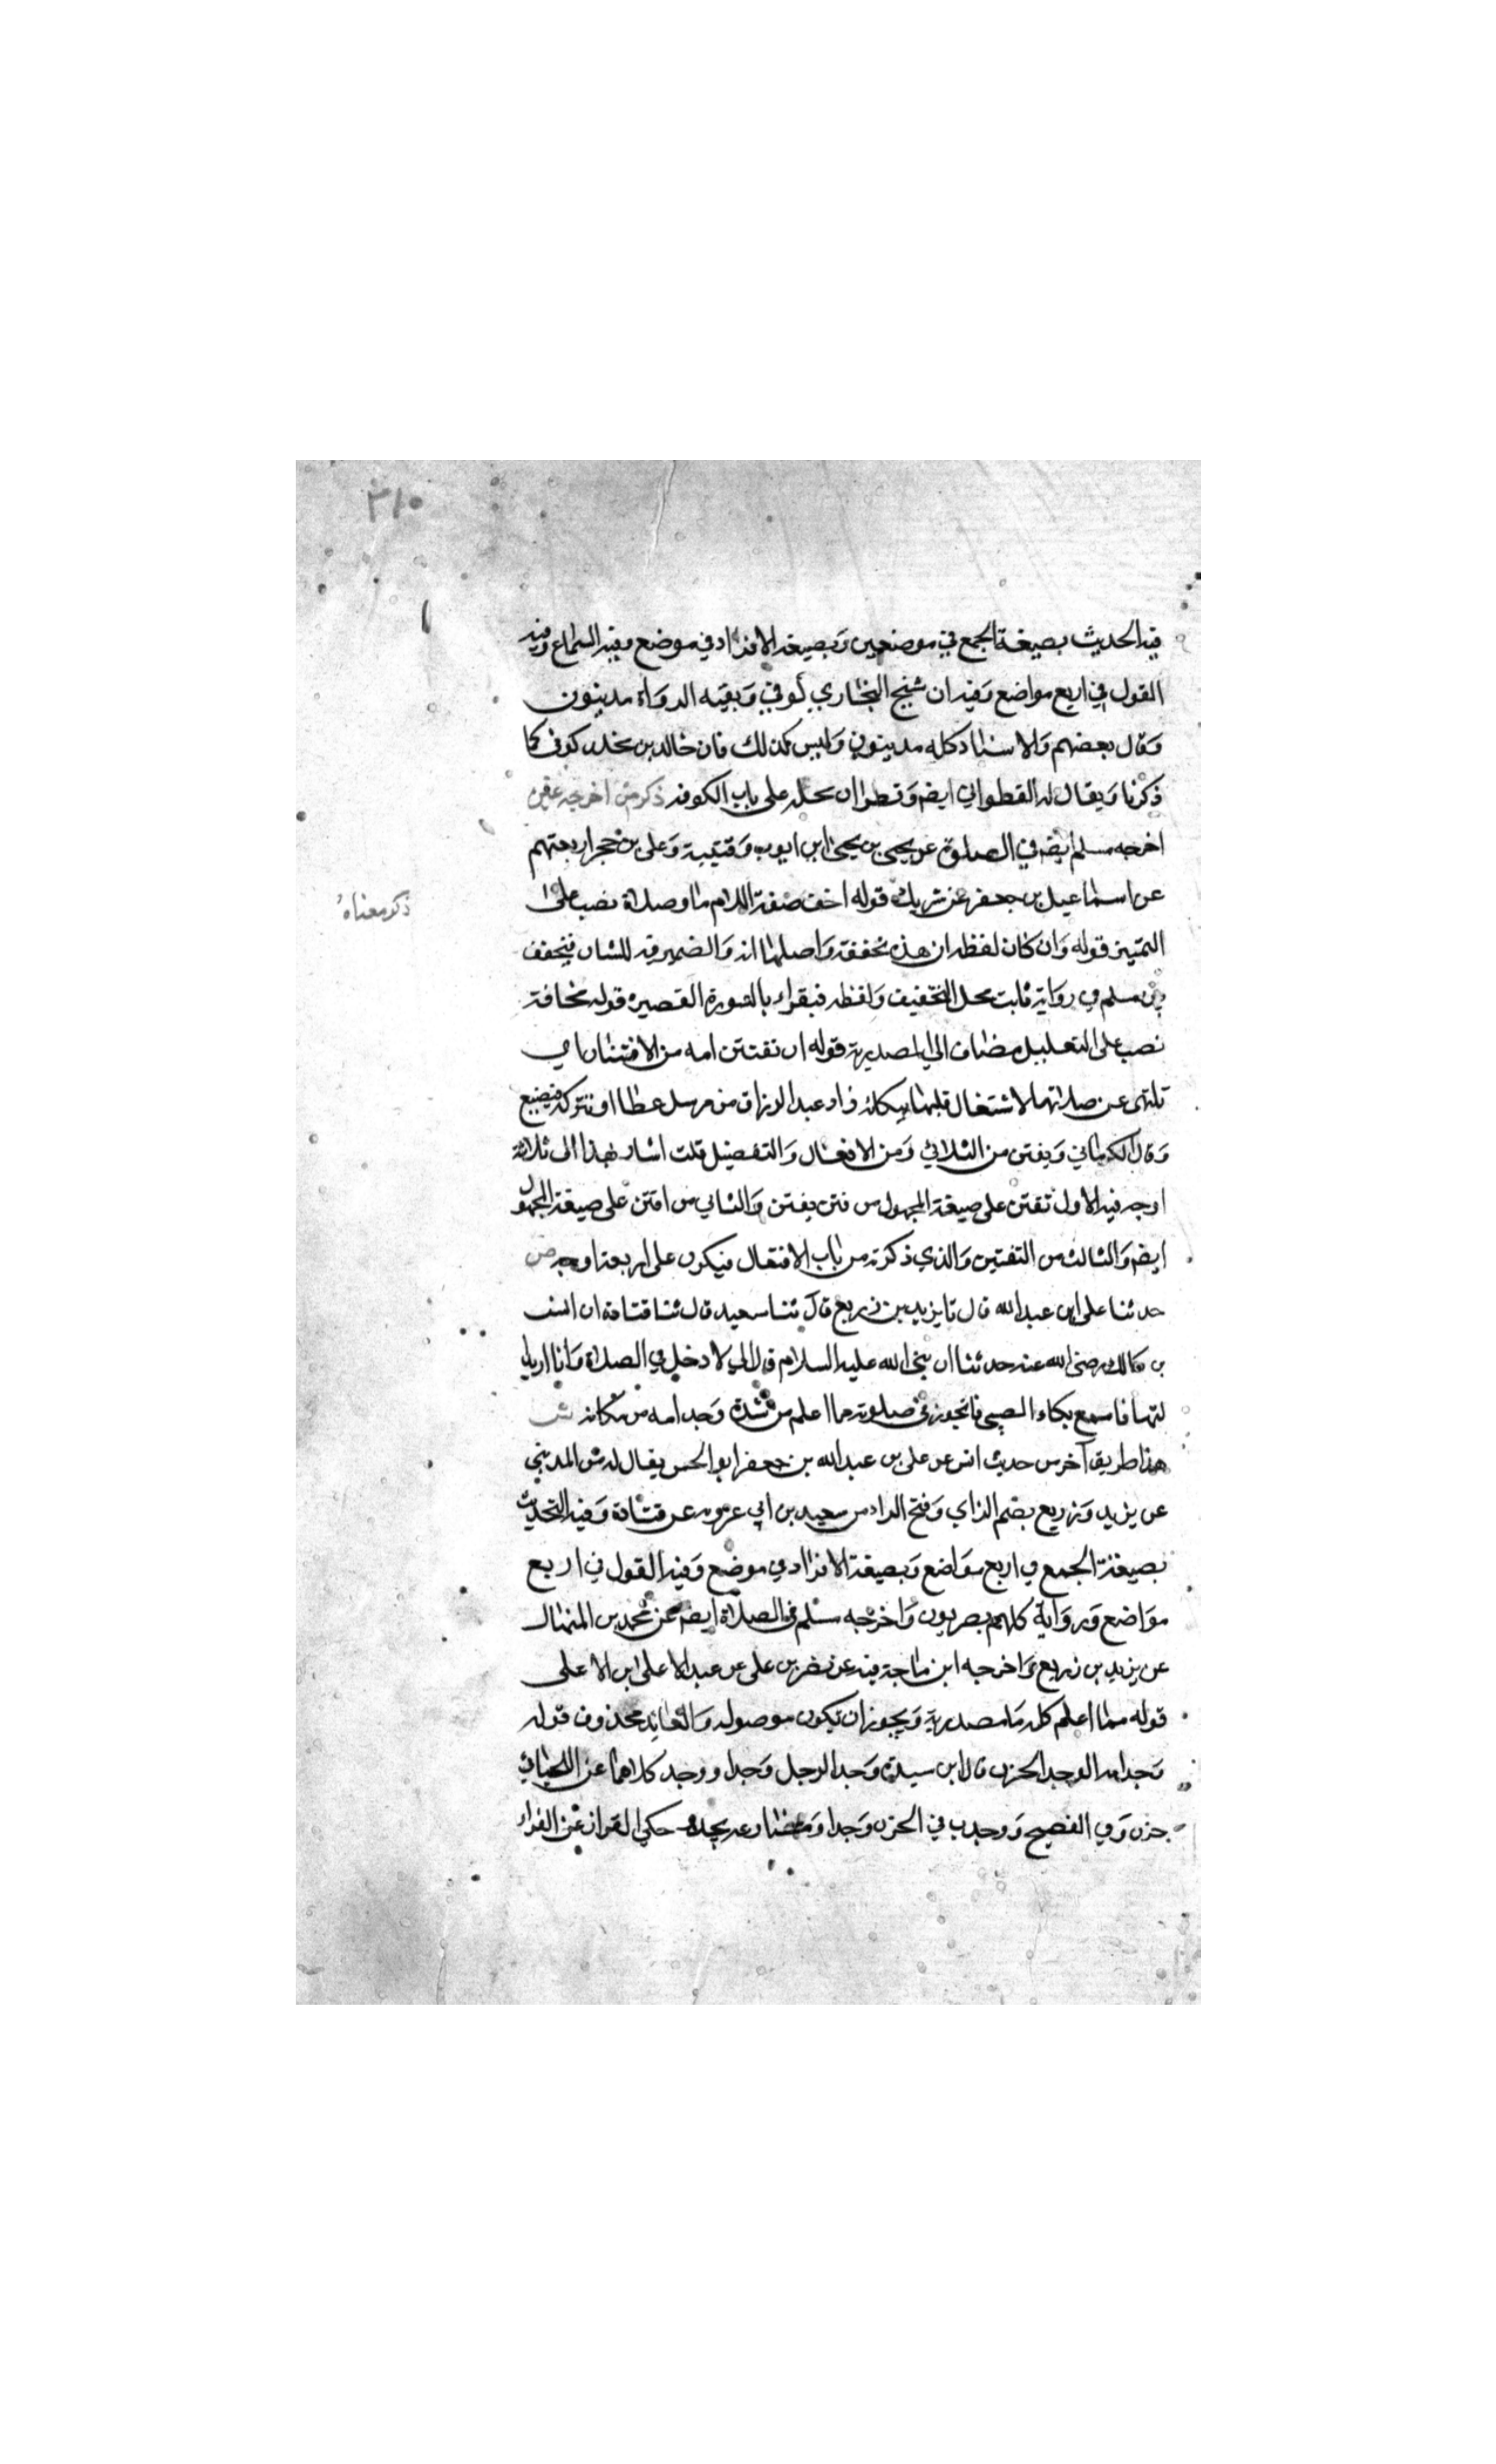 ٣١٥
فيه الحديث بصيغة الجمع في موضعين وبصيغة الافراد في موضع وفيه السماع وفيه
القول في اربع مواضع وفيه ان شيخ البخاري كوفي وبقيه الرواة مدينون
وقال بعضهم والاسناد كله مدينون وليس كذلك فان خالد بن مخلد كوفي كما
ذكرنا ويقال له القطواني ايضه وقطوان محله على باب الكوفه ذكر من اخرجه غيره
اخرجه مسلم ايضه في الصلوة عن يحيى بن يحيى ابن ايوب وقتيبة وعلى بن حجر اربعتهم
عن اسماعيل بن جعفر عن شريك قوله اخف صفة للامام ما وصلاة نصب على
ذكر معناه
التميز قوله وان كان لفظه ان هذه مخففة واصلها انه والضمير فيه للشان فيخفف
بين مسلم في رواية ثابت محل التخفيف ولفظه فيقراء بالسورة القصيره قوله مخافة
نصب على التعليل مضاف الي ان المصدرية قوله ان تفتتن امه من الافتتان اي
تلتهى عن صلاتها لاشتغال قلبها ببكائه زاد عبد الرزاق من مرسل عطا او تتركه فيضيع
وقال الكرماني ويفتن من الثلاثي ومن الافعال والتفعيل قلت اشار بهذا الى ثلاثة
اوجه فيه الاول تفتن على صيغة المجهول من فتن يفتن والثاني من افتن على صيغة المجهول
ايضه والثالث من التفتين والذي ذكرته من باب الافتعال فيكون على اربعة اوجه ص
حدثنا على ابن عبد الله قال نا يزيد بن زريع قال ثنا سعيد قال ثنا قتادة ان انس
بن مالك رضي الله عنه حدثنا ان نبي الله عليه السلام قال اني لادخل في الصلاة وانا اريد
لتها فاسمع بكاء الصبي فاتجوز في صلوته مما اعلم من شدة وجد امه من بكائه ش
هذا طريق آخر من حديث انس عن على بن عبد الله بن جعفر ابو الحسن يقال له بن المديني
عن يزيد وزريع بضم الزاي وفتح الراء من سعيد بن ابي عروبه عن قتادة وفيه التحديث
بصيغة الجمع في اربع مواضع وبصيغة الافراد في موضع وفيه القول في اربع
مواضع ورواية كلهم بصريون واخرجه مسلم في الصلاة ايضه عن محمد بن المنهال
عن يزيد بن زريع واخرجه ابن ماجة فيه عن نضر بن على عن عبد الاعلى ابن الاعلى
قوله مما اعلم كله ما مصدرية ويجوز ان يكون موصوله والعائد محذوف قوله
وجد امه الوجد الحزن قال ابن سيده وجد الرجل وجدا ووجد كلاهما عن اللحياني
حزن وفي الفصيح ووجدت في الحزن وجدا ومضارعه يجده حكي القزاز عن الفراء